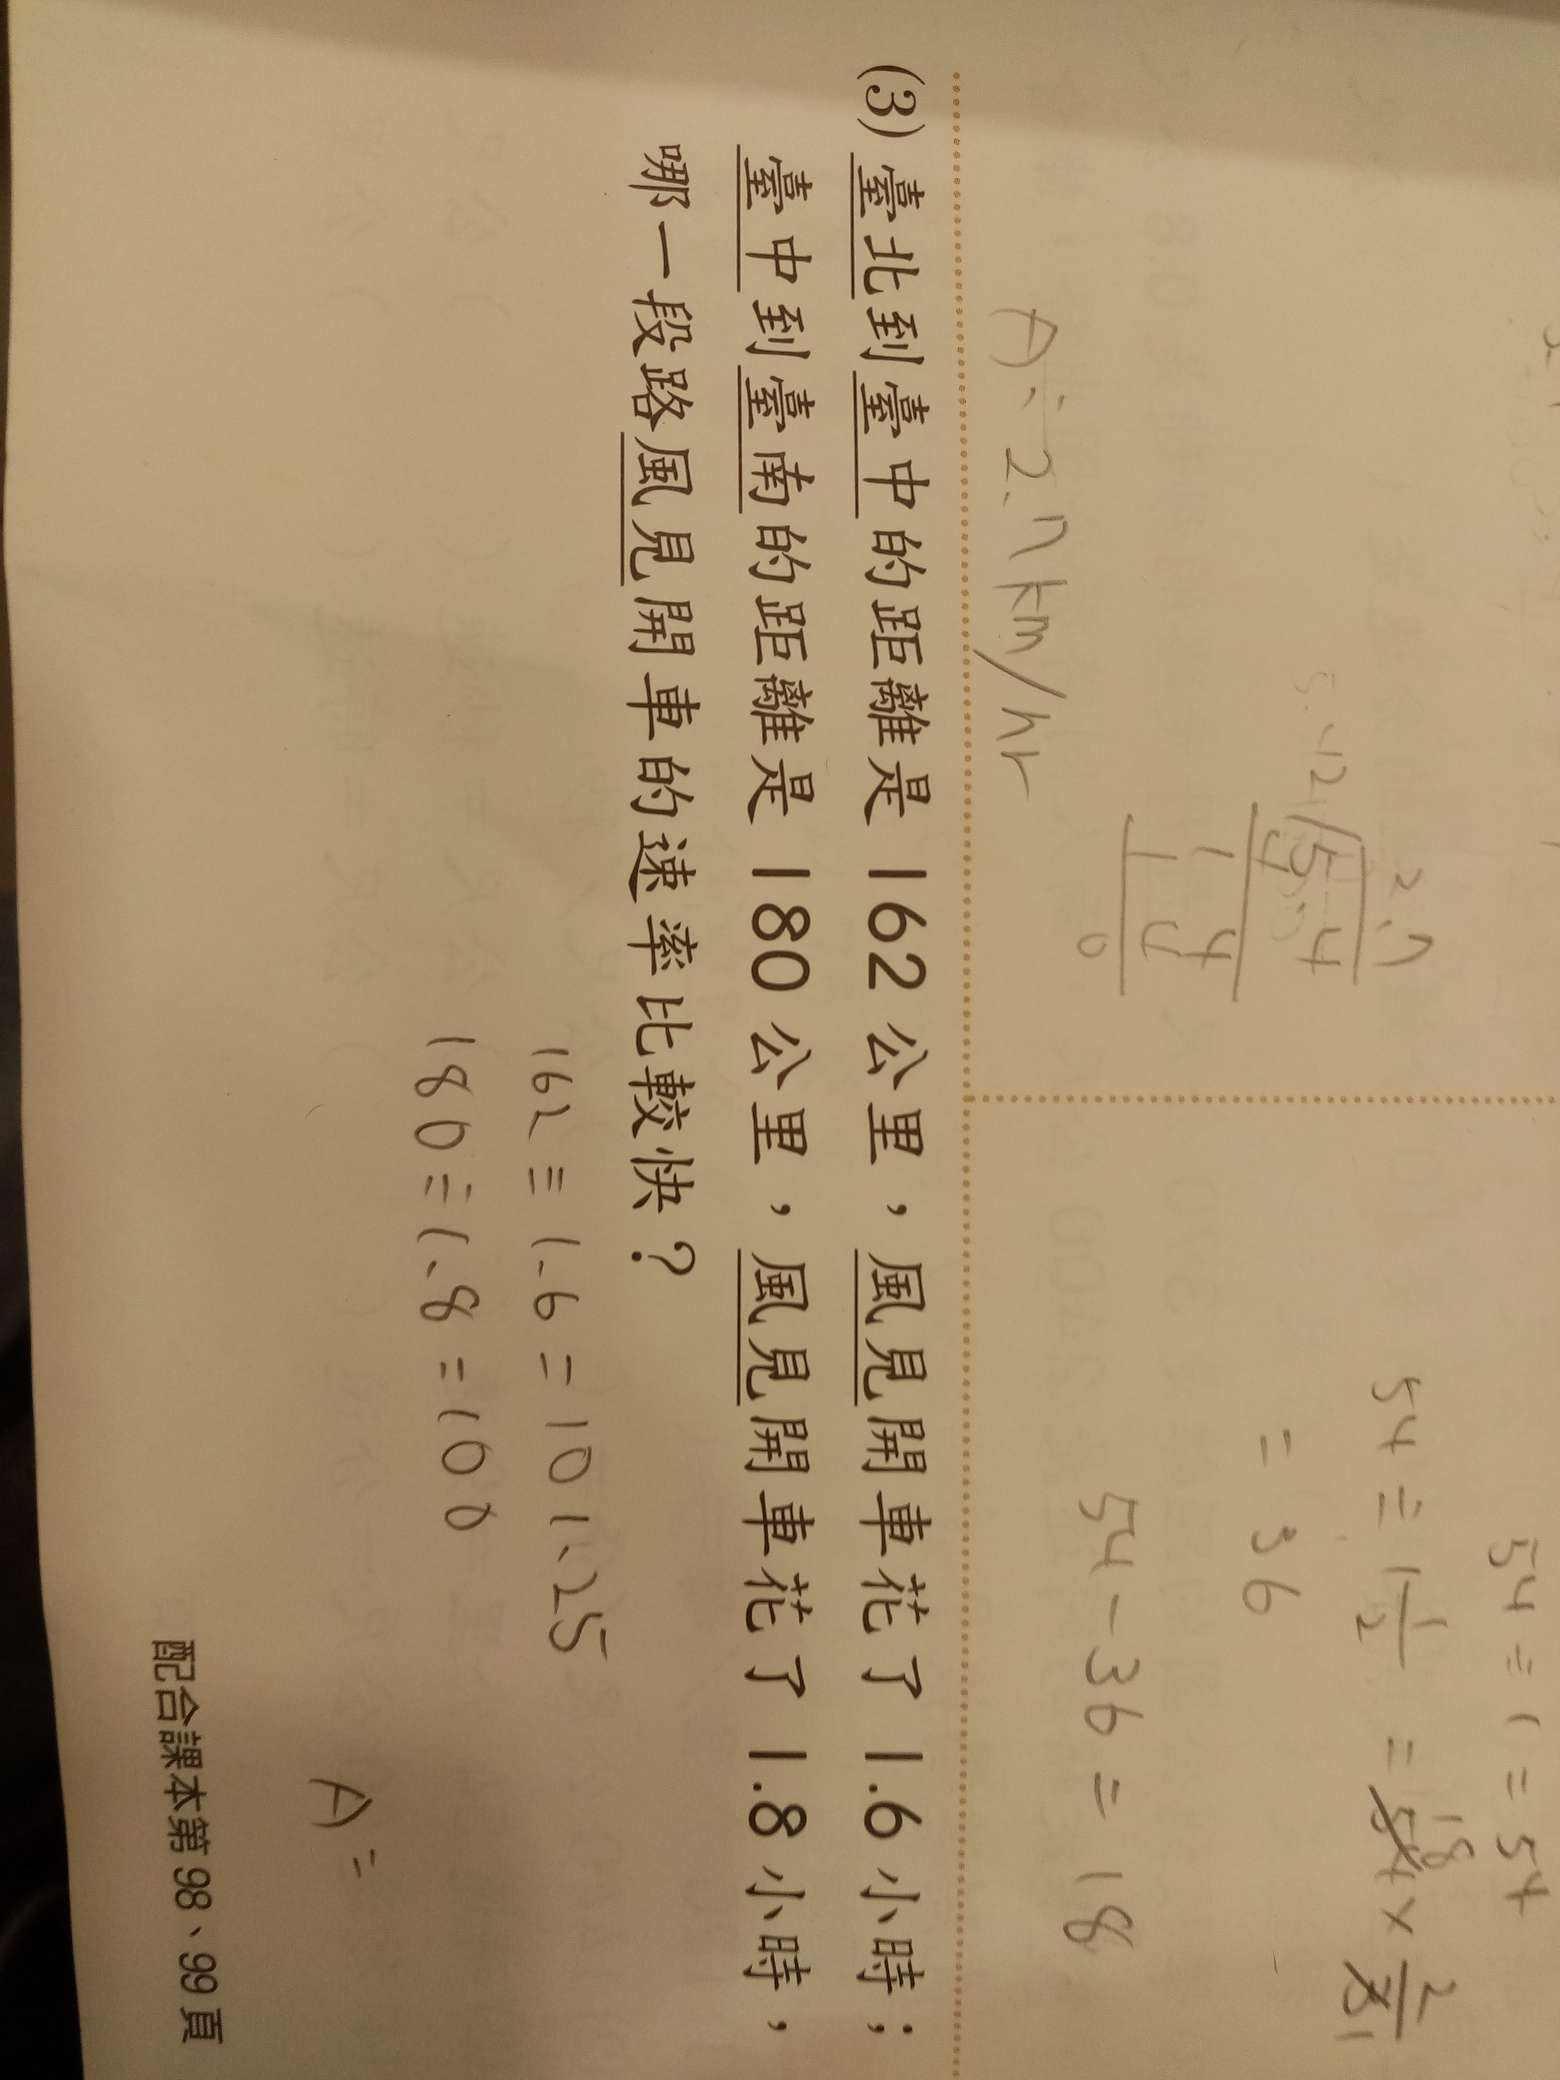 54÷1=54
54÷1 1/2 = 54×2/3
18
1
=36
54-36=18
2.7
2/5.4
4
14
14
0
A:2.7km/hr
(3)臺北到臺中的距離是162公里，風見開車花了1.6小時；
臺中到臺南的距離是180公里，風見開車花了1.8小時，
哪一段路風見開車的速率比較快？
162÷1.6=101.25
180÷1.8=100
A:
配合課本第98、99頁